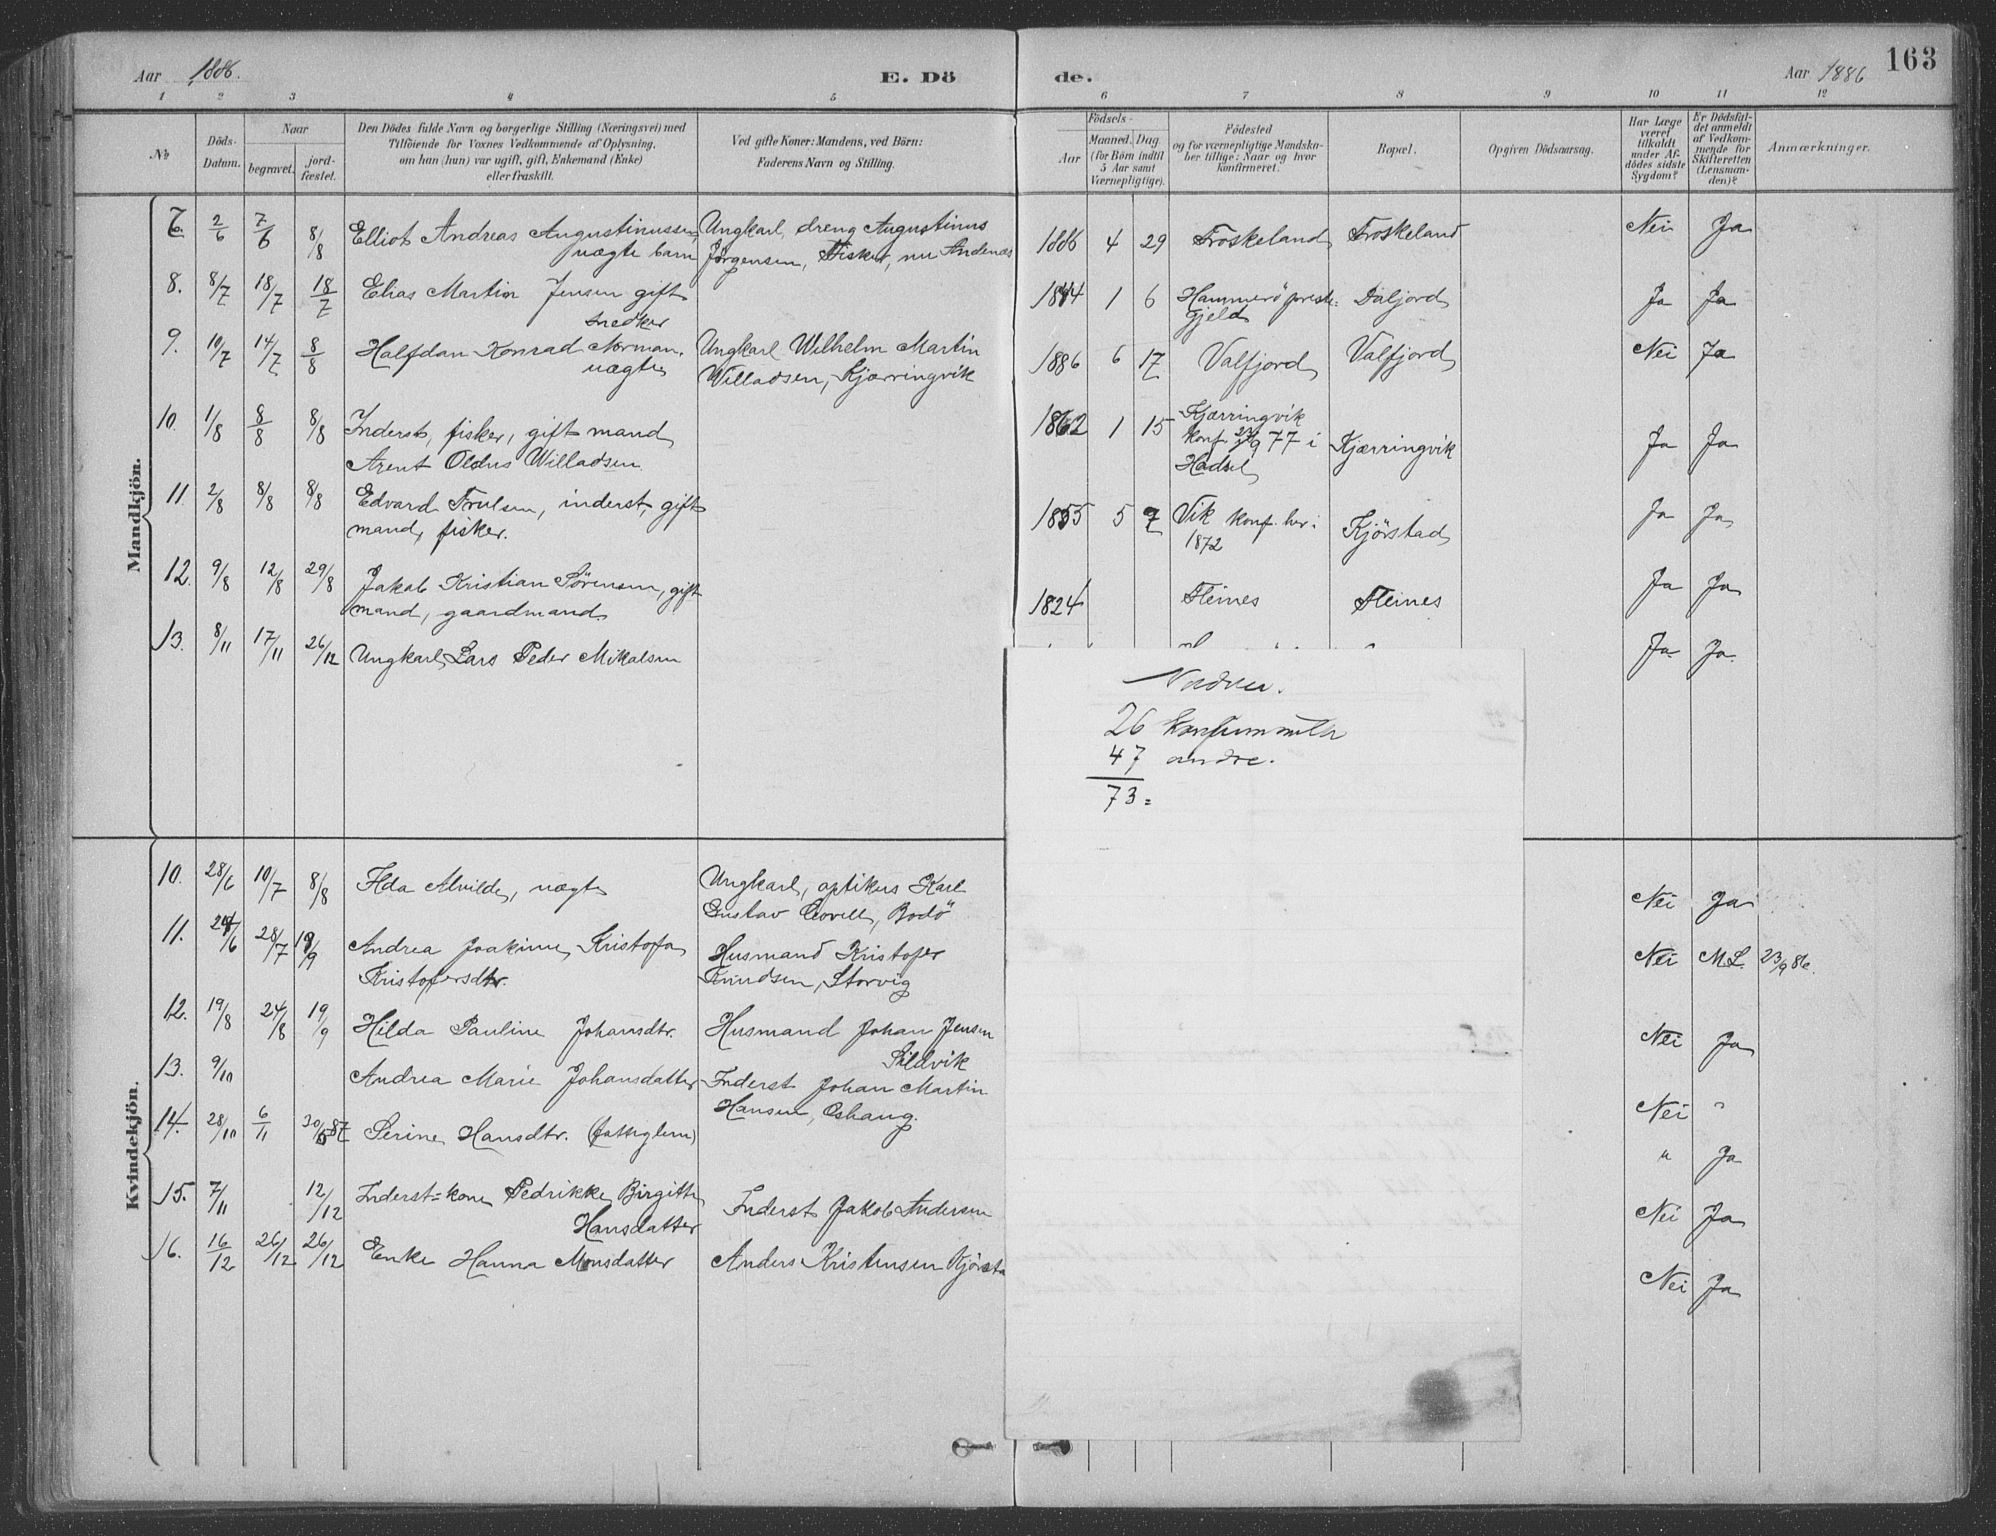 Aar 1886.
E. Dö
de.
Aar 1886
163
1 2 3 4 5 6 7 8 9 10 11 12
№
Döds-Datum.
Naar
begravet.
jordfæstet.
Den Dödes fulde Navn og borgerlige Stilling (Næringsvei) med
Tilföiende for Voxnes Vedkommende af Oplysning,
om han (hun) var ugift, gift, Enkemand (Enke)
eller fraskilt.
Ved gifte Koner: Mandens, ved Börn:
Faderens Navn og Stilling.
Födsels-
Aar
Maaned. Dag.
(for Börn indtil
5 Aar samt
Værnepligtige).
Födested
og for værnepligtige Mandska-
ber tillige: Naar og hvor
konfirmeret.
Bopæl.
Opgiven Dödsaarsag.
Har Læge
været
tilkaldt
under Af-
dödes sidste
Sygdom?
Er Dödsfal-
det anmeldt
af Vedkom-
mende for
Skifteretten
(Lensman-
den)?
Anmærkninger.
Mandkjön.
7. 2/6 7/6 8/8 Elliot Andreas Augustinussen, Ungkarl, dreng Augustinus 1886 4 29 Froskeland Froskeland Nei Ja
uægte barn Jørgensen, Fisker, nu Andenæs
8. 8/7 18/7 18/7 Elias Martin Jensen gift 1844 1 6 Hammerö preste- Daljord Ja Ja
snedker gjeld
9. 10/7 14/7 8/8 Halfdan Konrad Norman, Ungkarl Wilhelm Martin 1886 6 17 Valfjord Valfjord Nei Ja
uægte Willadsen, Kjærringvik
10. 1/8 8/8 8/8 Inderst, fisker, gift mand 1862 1 15 Kjærringvik Kjærringvik Ja Ja
Arent Oldus Willadsen konf. 23/9 77 i
Hadsel
11. 2/8 8/8 8/8 Edvard Trulsen, inderst, gift 1855 5 7 Vik konf. her i Kjörstad Ja Ja
mand, fisker. 1872
12. 9/8 12/8 29/8 Jakob Kristian Sörensen, gift 1824 Fleines Fleines Ja Ja
mand, gaardmand
13. 8/11 17/11 26/12 Ungkarl Lars Peder Mikalsen Ja Ja
26 konfirmmulte
47 andre.
73 =
Kvindekjön.
10. 28/6 10/7 8/8 Ilda Alvilde, uægte Ungkarl, optikus Karl Nei Ja
Gustav , Bodö
11. 24/6 28/7 19/9 Andrea Joakime Kristofa Husmand Kristofer Nei M.L. 23/9 86.
Kristofersdtr. Knudsen, Storvig
12. 19/8 24/8 19/9 Hilda Pauline Johansdtr. Husmand Johan Jensen Nei Ja
Sildvik
13. 9/10 Andrea Marie Johansdatter Inderst Johan Martin Nei "
Hansen, Oshaug.
14. 28/10 6/11 30/5 87 Serine Hansdtr. (fattiglem) " Ja
15. 7/11 12/12 Inderst=kone Pedrikke Birgitte Inderst Jakob Andersen Nei Ja
Hansdatter
16. 16/12 26/12 26/12 Enke Hanna Monsdatter Anders Kristensen Kjörsta Nei Ja